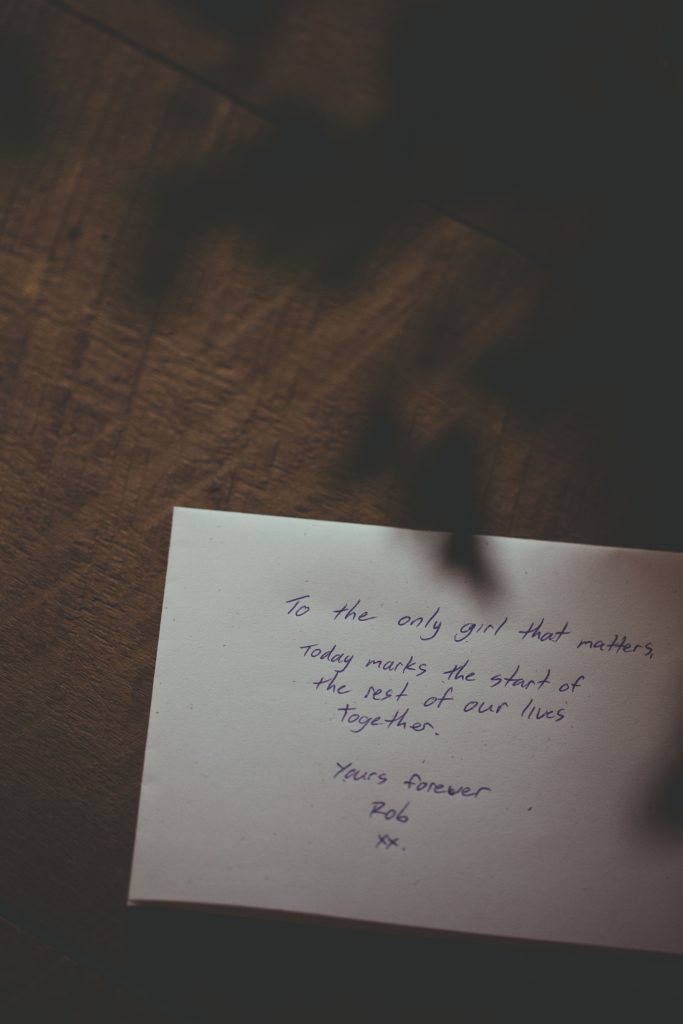 To the only girl that matters,
Today marks the start of
the rest of our lives
together.
Yours forever
Rob
xx.